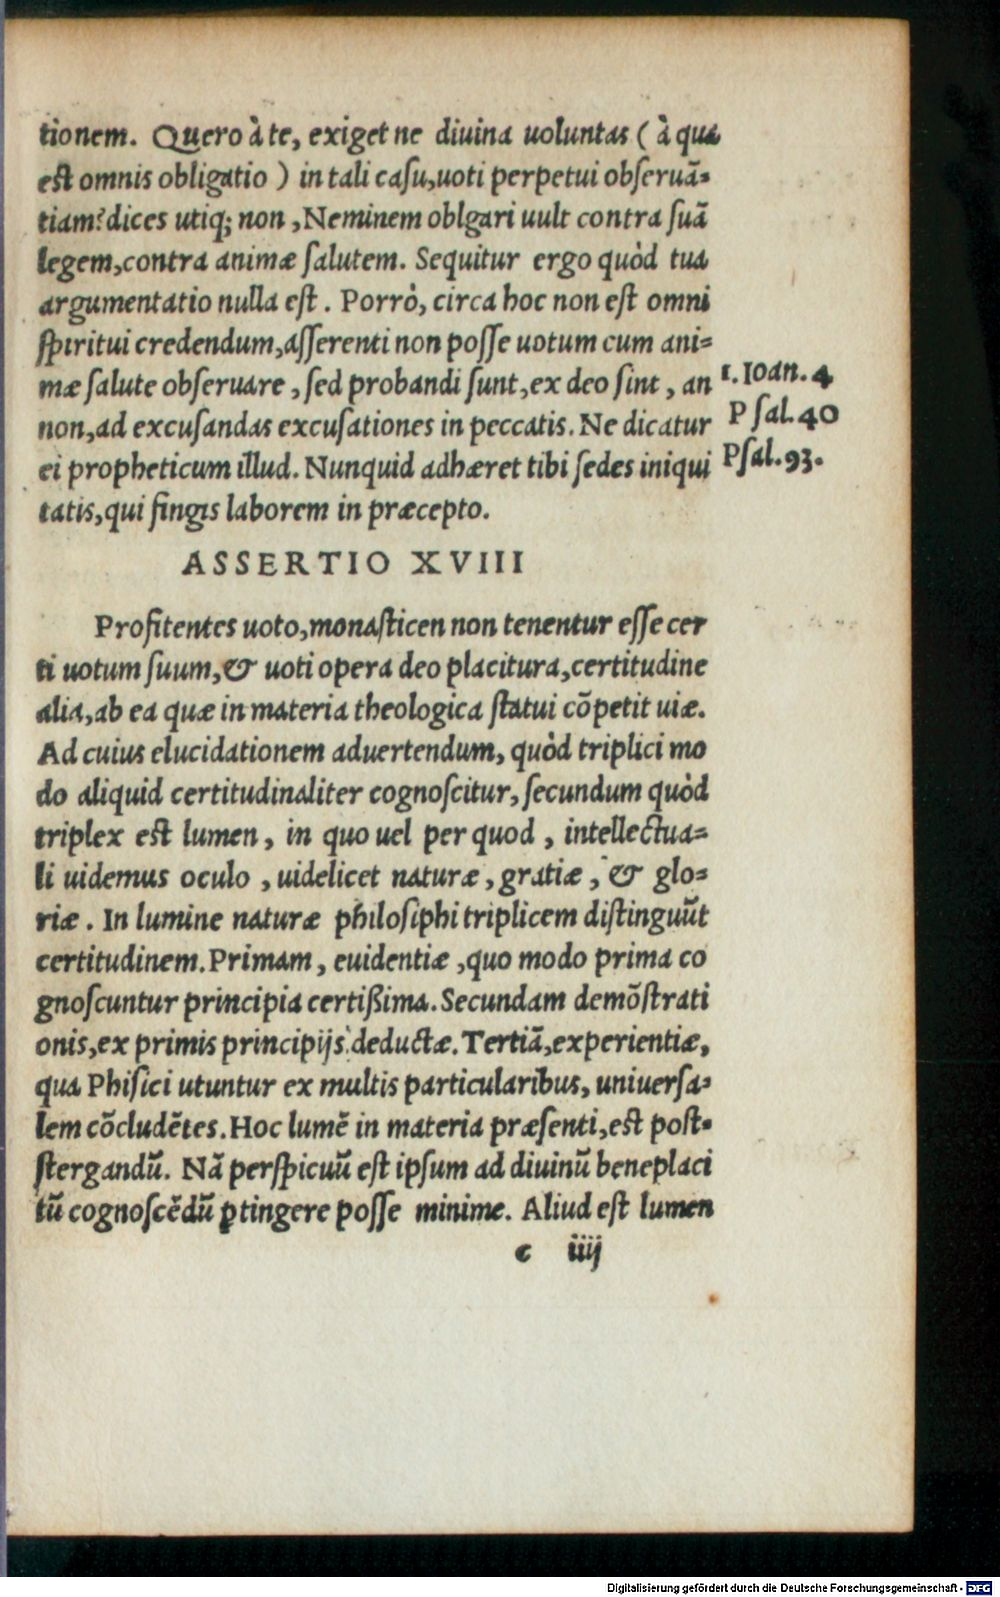 tionem. Quero à te, exiget ne diuina uoluntas (à qua
est omnis obligatio) in tali casu, uoti perpetui obseruā-
tiam? dices utiq; non, Neminem oblgari uult contra suā
legem, contra animæ salutem. Sequitur ergo quòd tua
argumentatio nulla est. Porrò, circa hoc non est omni
spiritui credendum, asserenti non posse uotum cum ani-
mæ salute obseruare, sed probandi sunt, ex deo sint, an
1. Ioan. 4
non, ad excusandas excusationes in peccatis. Ne dicatur
Psal. 40
ei propheticum illud. Nunquid adhæret tibi sedes iniqui
Psal. 93.
tatis, qui fingis laborem in præcepto.
ASSERTIO XVIII
Profitentes uoto, monasticen non tenentur esse cer
ti uotum suum, & uoti opera deo placitura, certitudine
alia, ab ea quæ in materia theologica statui cōpetit uiæ.
Ad cuius elucidationem aduertendum, quòd triplici mo
do aliquid certitudinaliter cognoscitur, secundum quòd
triplex est lumen, in quo uel per quod, intellectua-
li uidemus oculo, uidelicet naturæ, gratiæ, & glo-
riæ. In lumine naturæ philosiphi triplicem distinguūt
certitudinem. Primam, euidentiæ, quo modo prima co
gnoscuntur principia certißima. Secundam demōstrati
onis, ex primis principijs deductæ. Tertiā, experientiæ,
qua Phisici utuntur ex multis particularibus, uniuersa-
lem cōcludētes. Hoc lumē in materia præsenti, est post-
stergandū. Nā perspicuū est ipsum ad diuinū beneplaci
tū cognoscēdū ꝑtingere posse minime. Aliud est lumen
c iiij
Digitalisierung gefördert durch die Deutsche Forschungsgemeinschaft - DFG